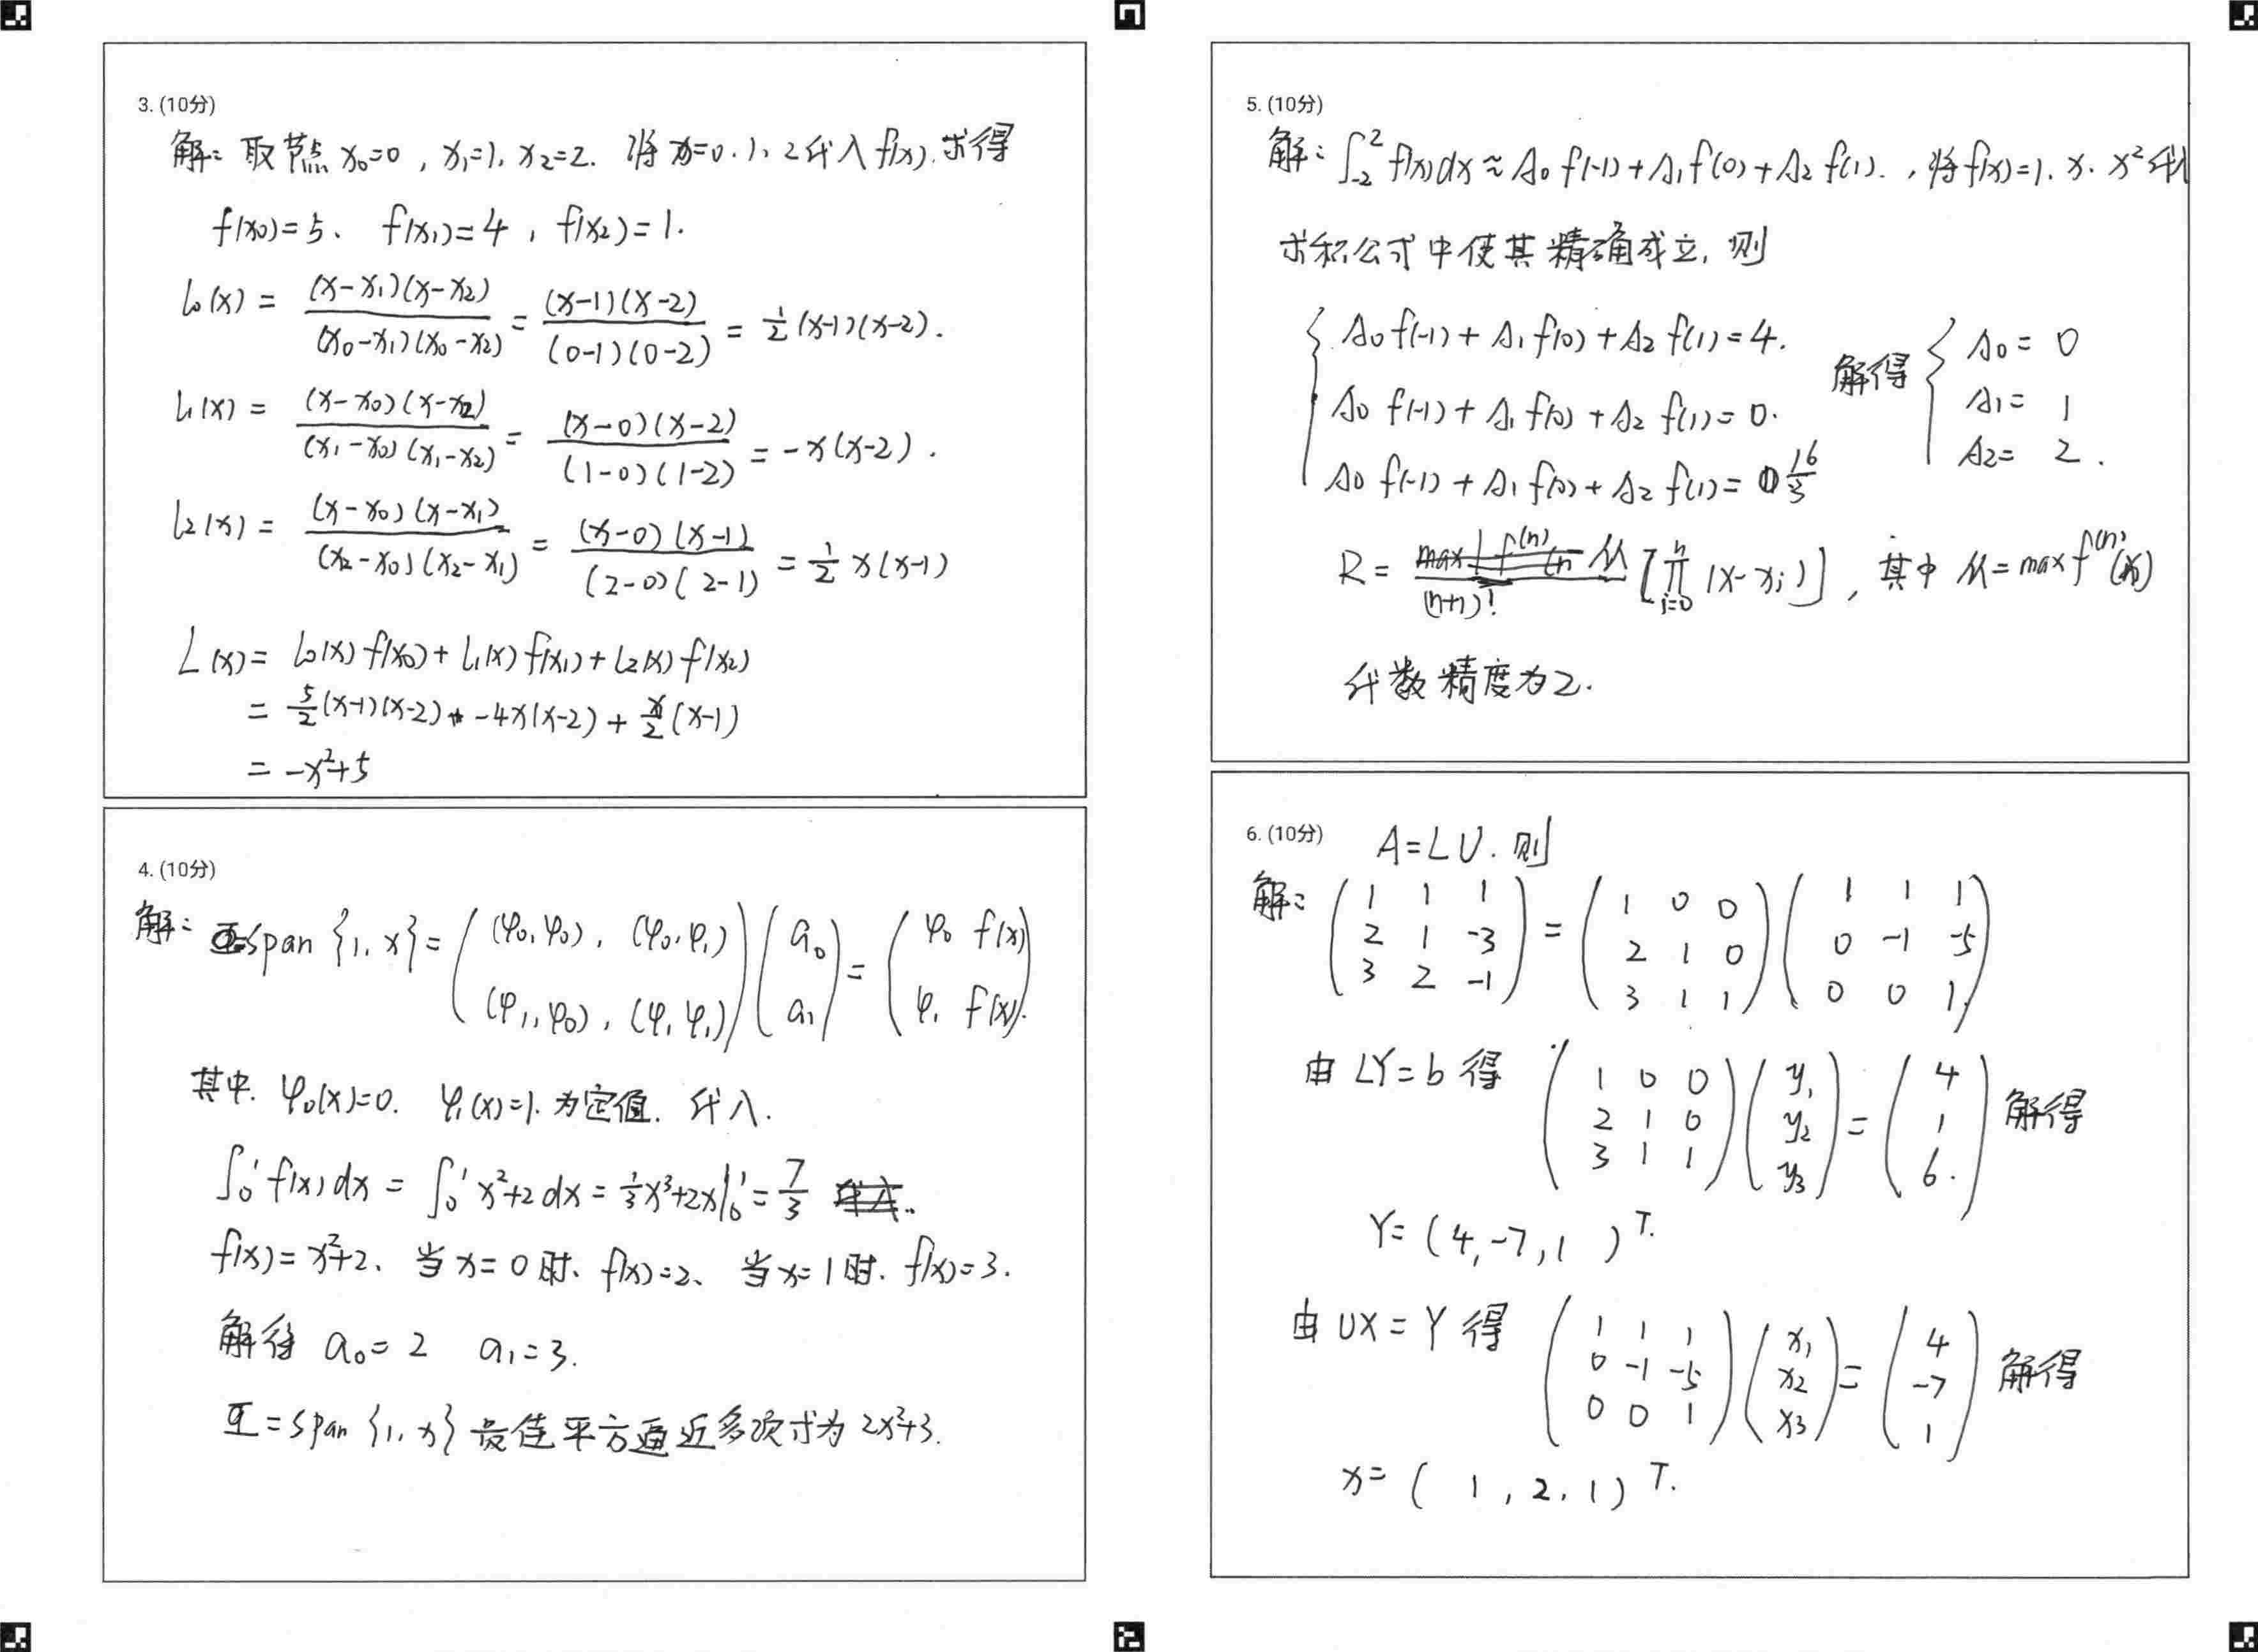 3. (10分)
解: 取节点 x₀=0, x₁=1, x₂=2. 将x=0.1、2代入f(x).求得
f(x₀)=5、 f(x₁)=4, f(x₂)=1.
l₀(x) = (x-x₁)(x-x₂)/(x₀-x₁)(x₀-x₂) = (x-1)(x-2)/(0-1)(0-2) = 1/2(x-1)(x-2).
l₁(x) = (x-x₀)(x-x₂)/(x₁-x₀)(x₁-x₂) = (x-0)(x-2)/(1-0)(1-2) = -x(x-2).
l₂(x) = (x-x₀)(x-x₁)/(x₂-x₀)(x₂-x₁) = (x-0)(x-1)/(2-0)(2-1) = 1/2 x(x-1)
L(x)= l₀(x)f(x₀)+l₁(x)f(x₁)+l₂(x)f(x₂)
= 5/2(x-1)(x-2) + -4x(x-2) + x/2(x-1)
= -x²+5
4. (10分)
解: Φ=span {1, x} = ( (φ₀,φ₀), (φ₀,φ₁) ; (φ₁,φ₀), (φ₁φ₁) ) ( a₀ ; a₁ ) = ( φ₀ f(x) ; φ₁ f(x) ).
其中. φ₀(x)=0. φ₁(x)=1. 为定值. 代入.
∫₀¹ f(x)dx = ∫₀¹ x²+2 dx = 1/3x³+2x|₀¹ = 7/3
f(x)= x²+2、 当x=0时、f(x)=2、 当x=1时. f(x)=3.
解得 a₀=2 a₁=3.
Φ=span {1, x} 最佳平方逼近多项式为 2x²+3.
5. (10分)
解: ∫₋₂² f(x)dx ≈ A₀f(-1)+A₁f(0)+A₂f(1). , 将f(x)=1. x. x²代入
求积公式中使其精确成立, 则
{ A₀f(-1)+A₁f(0)+A₂f(1)=4. 解得 { A₀= 0
A₀f(-1)+A₁f(0)+A₂f(1)=0. A₁= 1
A₀f(-1)+A₁f(0)+A₂f(1)= 16/3 A₂= 2.
R = M/(n+1)! [∏ᵢ₌₀ⁿ (x-xᵢ)], 其中 M=max f⁽ⁿ⁾(x)
代数精度为2.
6. (10分) A=LU. 则
解: ( 1 1 1 ; 2 1 -3 ; 3 2 -1 ) = ( 1 0 0 ; 2 1 0 ; 3 1 1 ) ( 1 1 1 ; 0 -1 -5 ; 0 0 1 )
由 LY=b 得 ( 1 0 0 ; 2 1 0 ; 3 1 1 ) ( y₁ ; y₂ ; y₃ ) = ( 4 ; 1 ; 6. ) 解得
Y= (4,-7,1 )ᵀ.
由 UX=Y 得 ( 1 1 1 ; 0 -1 -5 ; 0 0 1 ) ( x₁ ; x₂ ; x₃ ) = ( 4 ; -7 ; 1 ) 解得
x= ( 1, 2, 1)ᵀ.